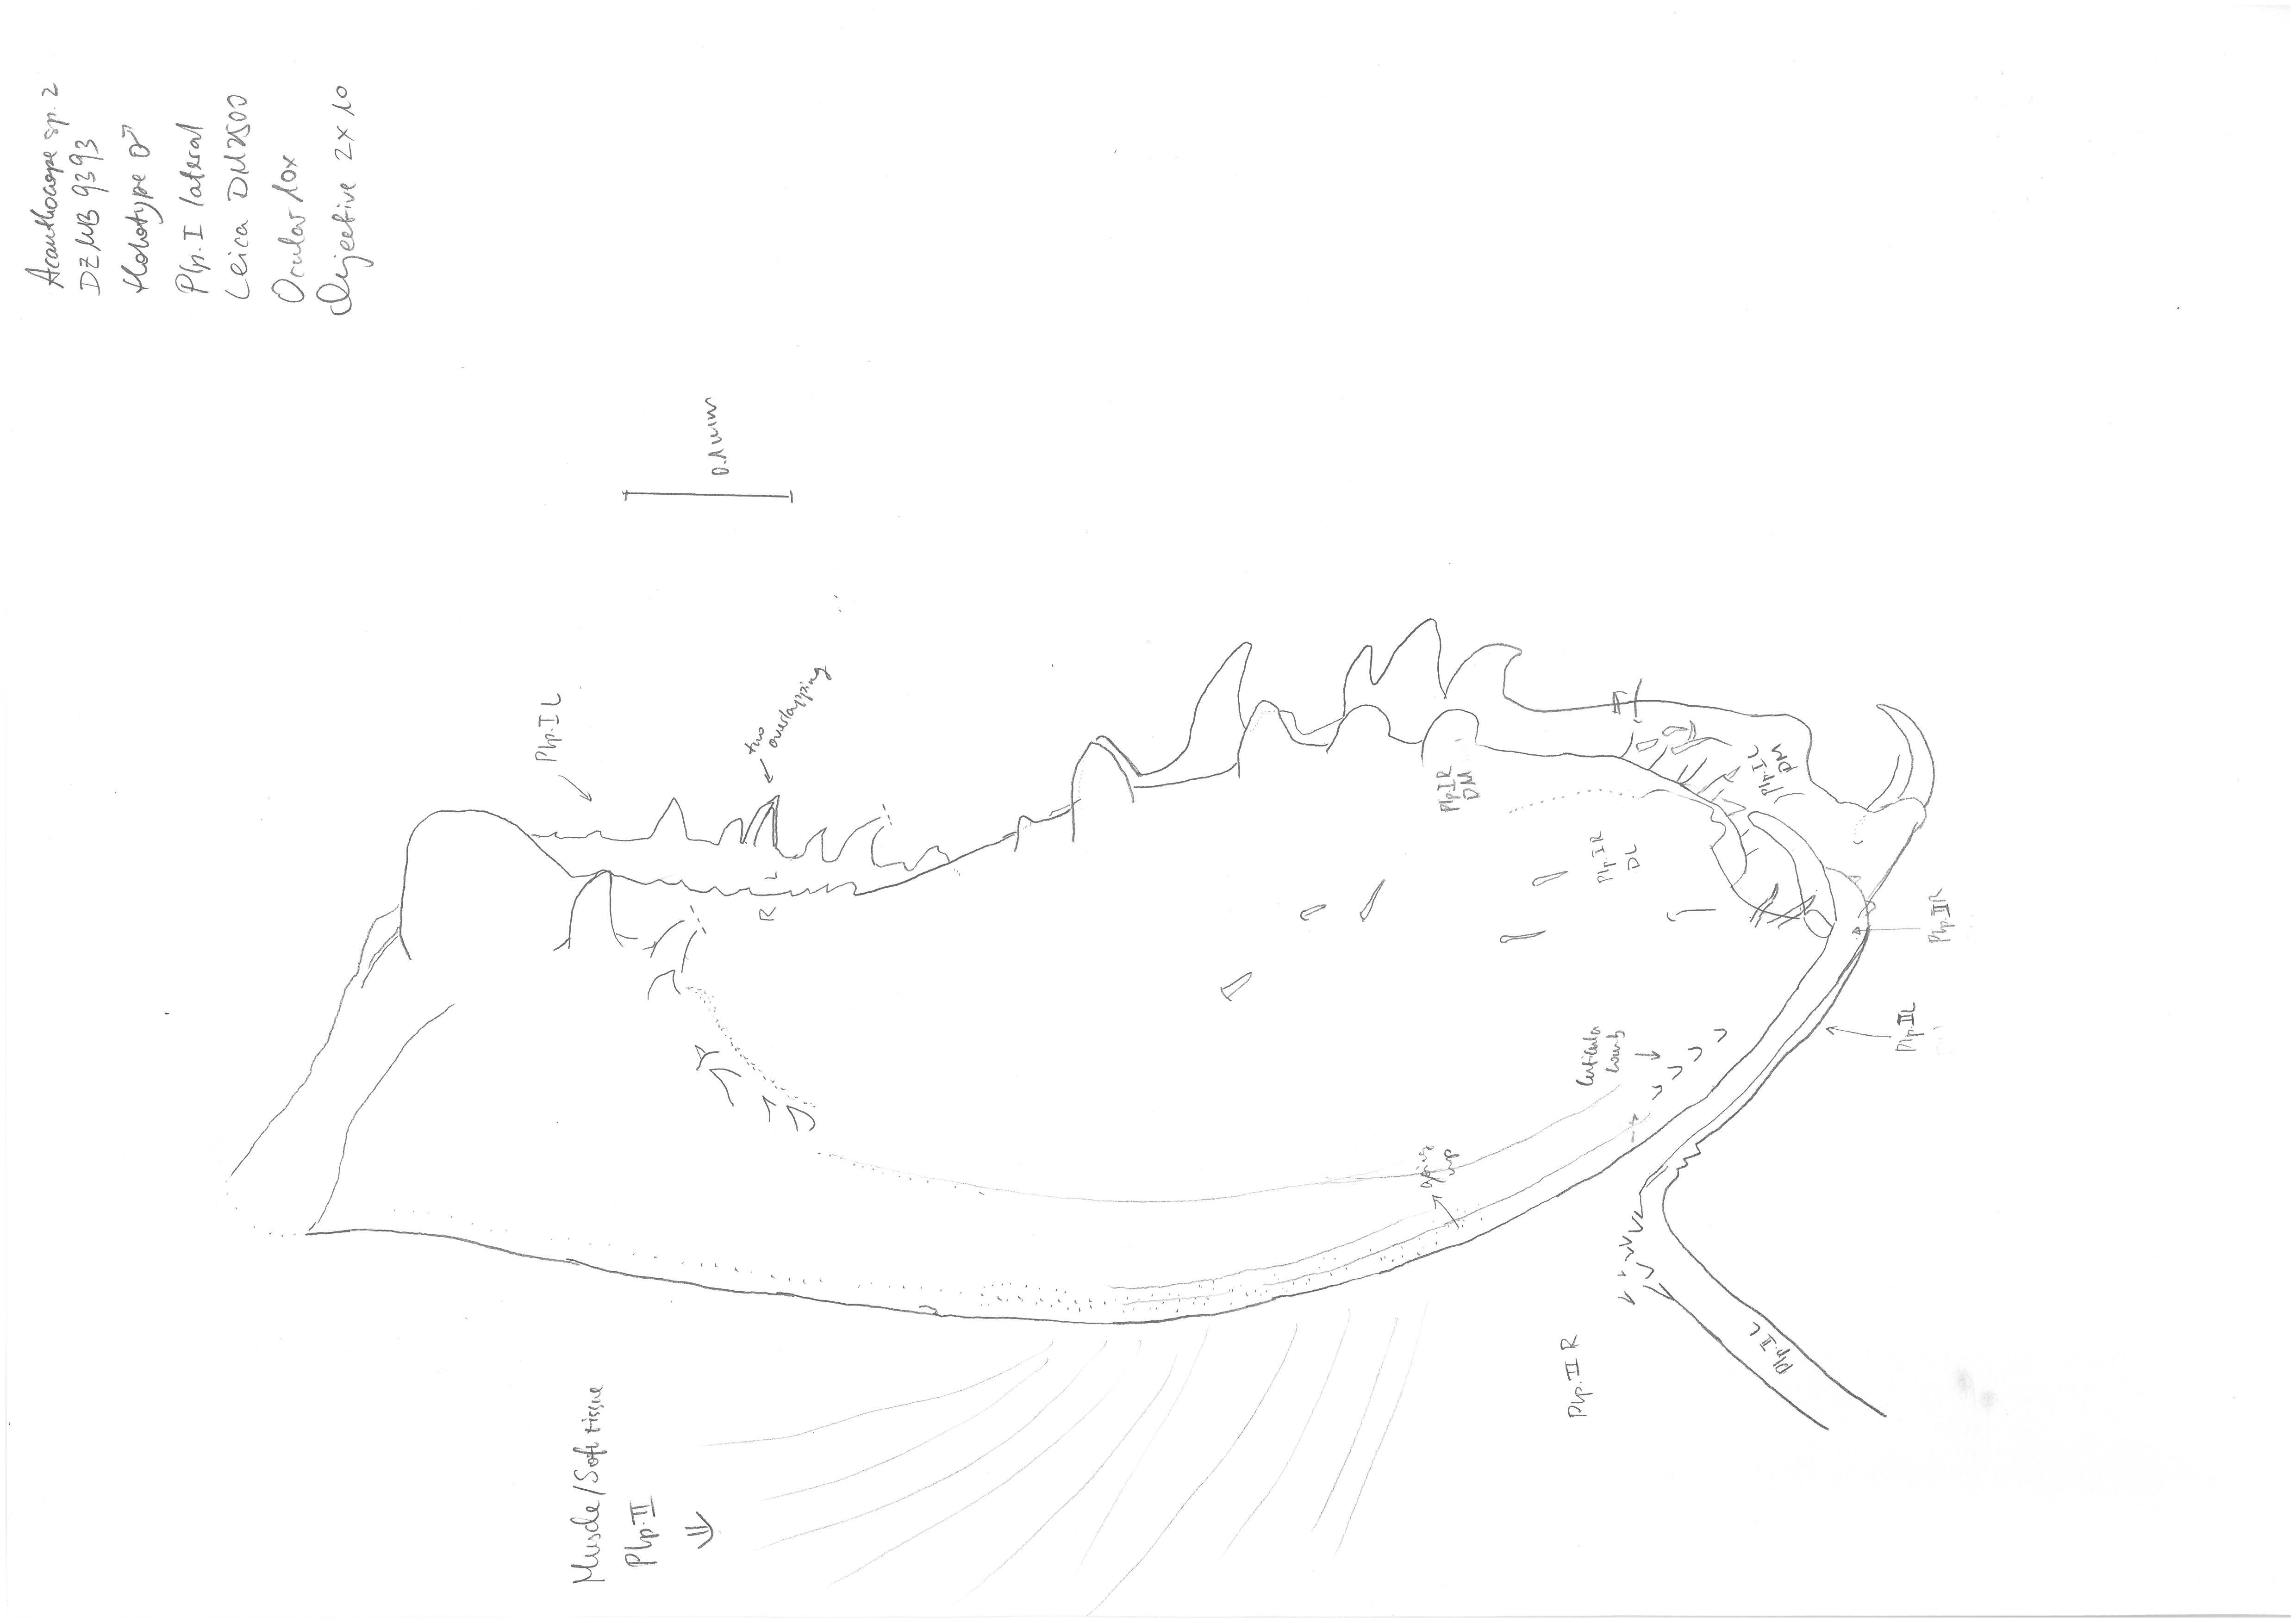 Acanthocope sp. 2
DZMB 9393
Holotype ♂
Plp. I lateral
Leica DM2500
Ocular 10x
Objective 2x10
Plp. I L
Muscle/Soft tissue
Plp. II
0.1mm
two
overlapping
R L
going
up
Plp. I R
DM
Plp. II R
Cuticula
comb
Plp. I R
DL
Plp. II L
Plp. I L
DM
Plp. II L
Plp. II R